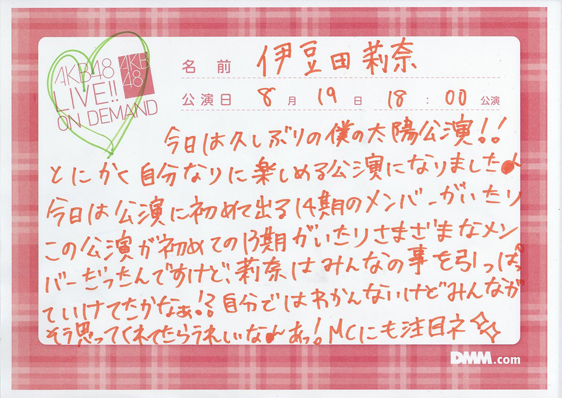 AKB48
LIVE!!
ON DEMAND
AKB
48
名前 伊豆田莉奈
公演日 8月19日 18:00公演
今日は久しぶりの僕の太陽公演!!
とにかく自分なりに楽しめる公演になりました♪
今日は公演に初めて出る14期のメンバーがいたり
この公演が初めての13期がいたりさまざまなメン
バーだったんですけど、莉奈はみんなの事を引っぱっ
ていけてたかなぁ!?自分ではわかんないけどみんなが
そう思ってくれてたらうれしいな♪あっ!MCにも注目ネ✧✧
DMM.com